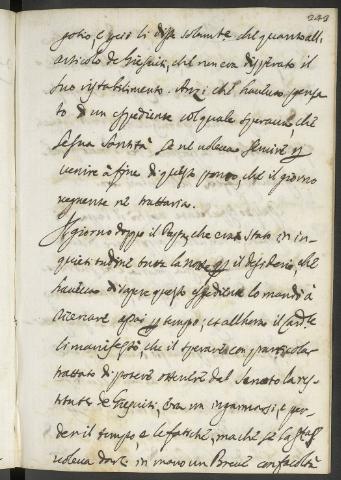 242
gotio, e però li disse solamte che quanto all
articolo de Giesuiti, che non era disperato il
suo ristabilimento. Anzi che haveua pensa
to di un espediente col quale speraua, che
se sua Santità se ne voleua seruire p
uenire à fine di questo ponto, che il giorno
seguente ne trattaria.
Il giorno doppo il Papa, che era stato in in-
quietitudine tutta la notte p il desiderio, che
haueua di sapere questo espediente lo mandò à
ricercare assai p tempo; et allhora il Cardle
li manifestò, che il sperare con particolar
trattato di potere ottenere dal Senato la res-
titute de Giesuiti, era un ingannarsi, e per-
der il tempo, e le fatiche, ma che se la
voleua darle in mano un Breue con facoltà